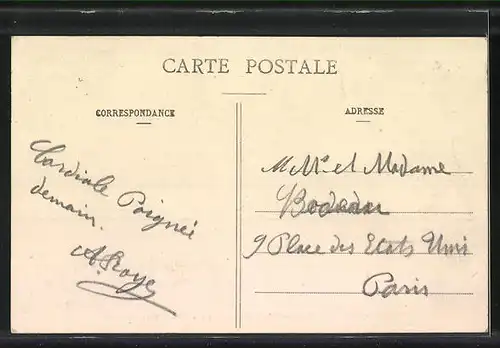 CARTE POSTALE
CORRESPONDANCE
Cordiale Poignée
demain.
ADRESSE
et Madame
9 Place des Etats Unis
Paris